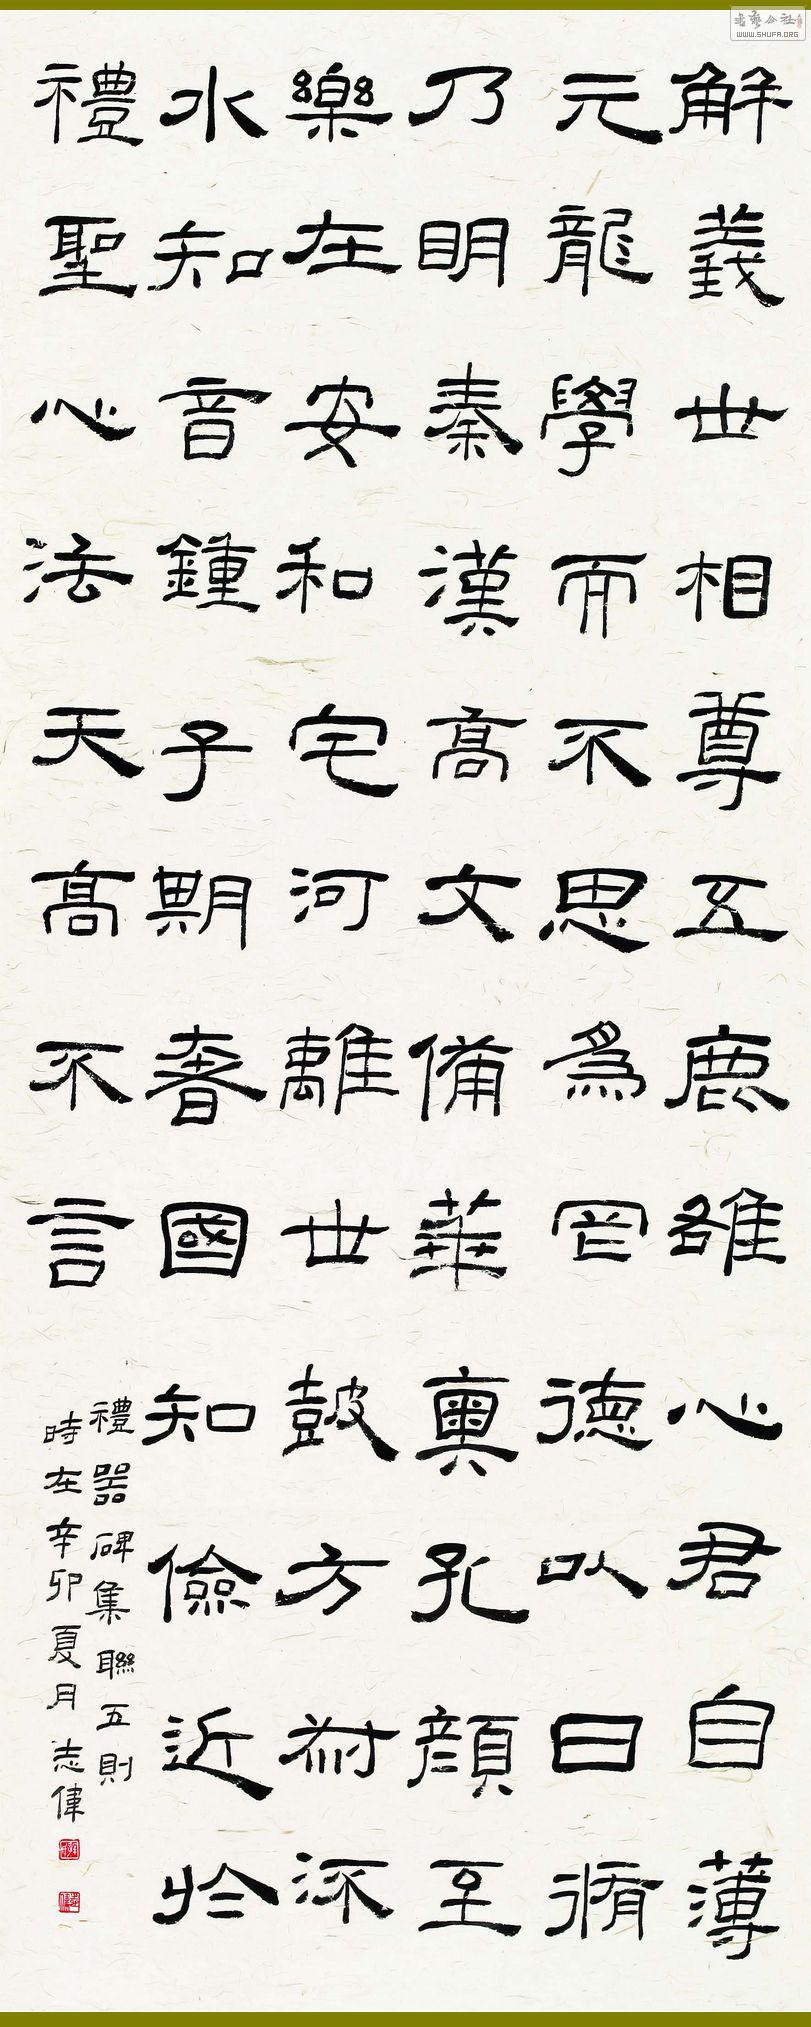 解義世相尊五鹿雒心君自薄
元龍學而不思為罔德以日脩
乃明秦漢高文備華輿孔顏至
樂在安和宅河離世鼓方術深
水知音鍾子期奢國知儉近於
禮聖心法天高不言
禮器碑集聯五則
時在辛卯夏月志偉
WWW.SHUFA.ORG